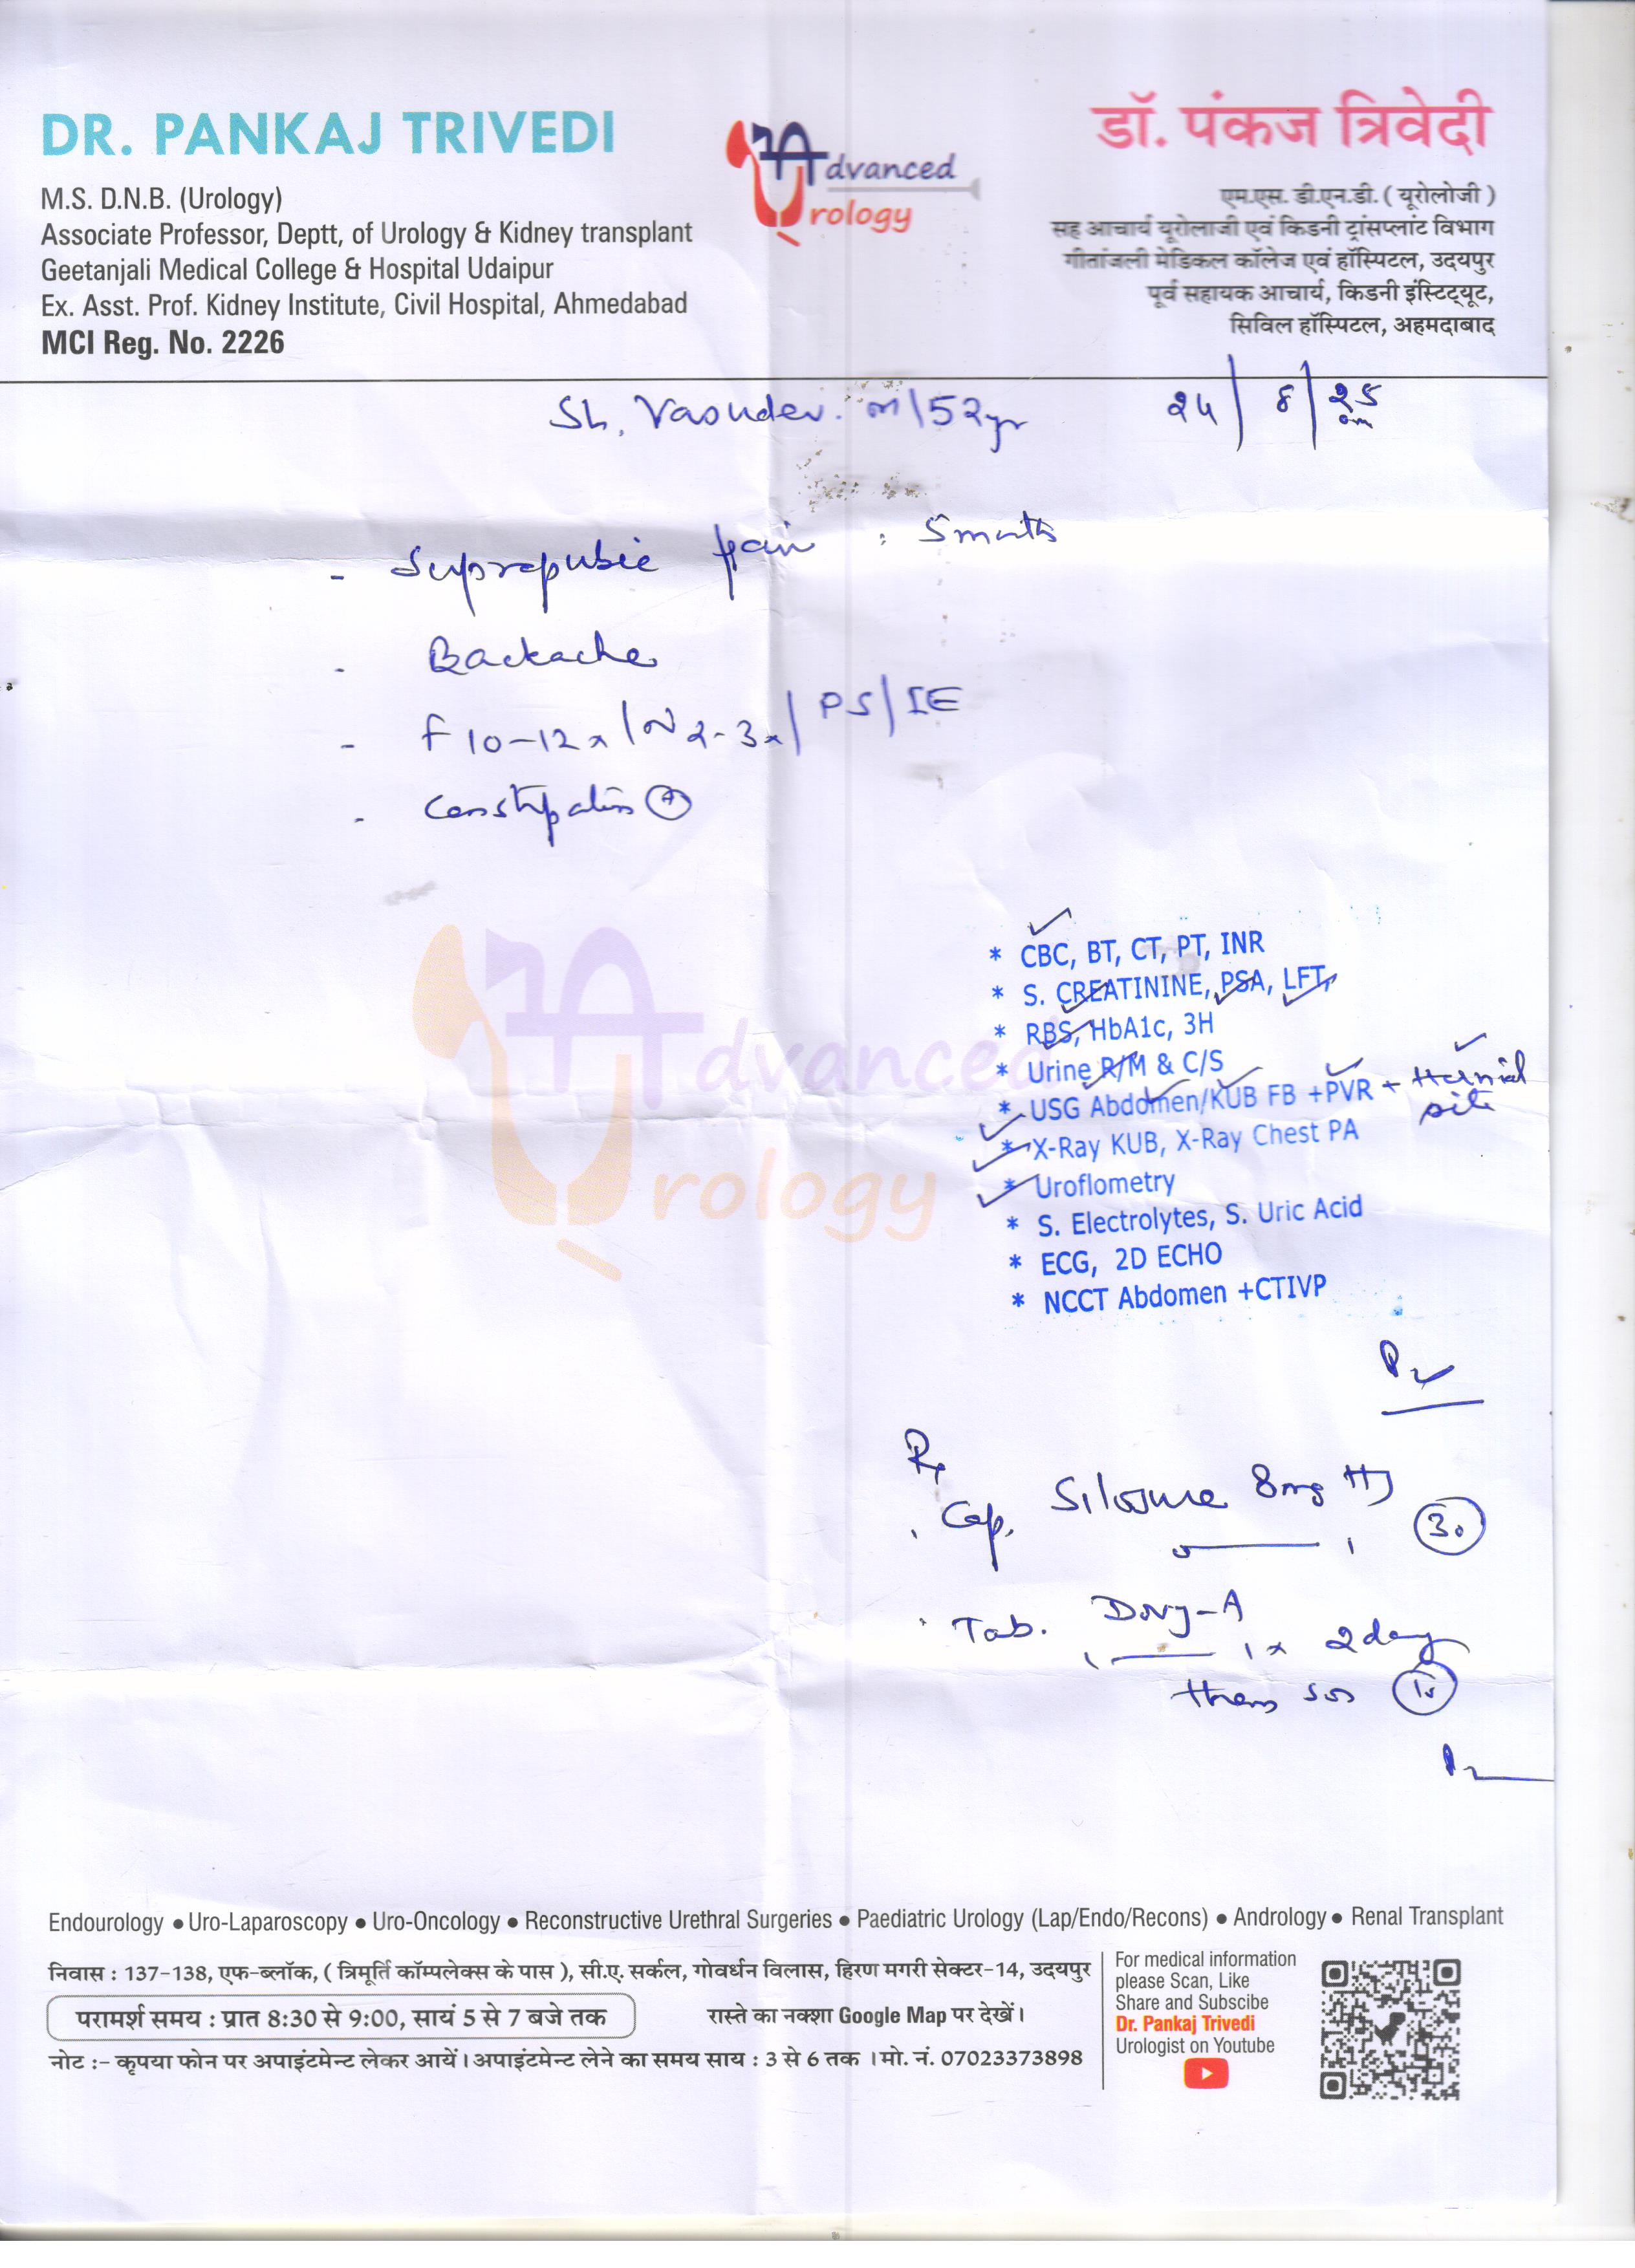 DR. PANKAJ TRIVEDI
M.S. D.N.B. (Urology)
Associate Professor, Deptt, of Urology & Kidney transplant
Geetanjali Medical College & Hospital Udaipur
Ex. Asst. Prof. Kidney Institute, Civil Hospital, Ahmedabad
MCI Reg. No. 2226
Advanced
Urology
डॉ. पंकज त्रिवेदी
एम.एस. डी.एन.डी. ( यूरोलोजी )
सह आचार्य यूरोलाजी एवं किडनी ट्रांसप्लांट विभाग
गीतांजली मेडिकल कॉलेज एवं हॉस्पिटल, उदयपुर
पूर्व सहायक आचार्य, किडनी इंस्टिट्यूट,
सिविल हॉस्पिटल, अहमदाबाद
Sh. Vasudev. m/52yr 24/8/25
- Suprapubic pain : 5 months
- Backache
- F 10-12x/N 2-3x/PS/IE
- Constipation
Advanced
Urology
* CBC, BT, CT, PT, INR
* S. CREATININE, PSA, LFT,
* RBS, HbA1c, 3H
* Urine R/M & C/S
* USG Abdomen/KUB FB +PVR + Hernial
site
* X-Ray KUB, X-Ray Chest PA
* Uroflometry
* S. Electrolytes, S. Uric Acid
* ECG, 2D ECHO
* NCCT Abdomen +CTIVP
Rx
Cap. 8mg 30
Tab. 1 x 2 day
then sos
Endourology ● Uro-Laparoscopy ● Uro-Oncology ● Reconstructive Urethral Surgeries ● Paediatric Urology (Lap/Endo/Recons) ● Andrology ● Renal Transplant
निवास : 137-138, एफ-ब्लॉक, ( त्रिमूर्ति कॉम्पलेक्स के पास ), सी.ए. सर्कल, गोवर्धन विलास, हिरण मगरी सेक्टर-14, उदयपुर
परामर्श समय : प्रात 8:30 से 9:00, सायं 5 से 7 बजे तक रास्ते का नक्शा Google Map पर देखें।
नोट :- कृपया फोन पर अपाइंटमेन्ट लेकर आयें। अपाइंटमेन्ट लेने का समय साय : 3 से 6 तक । मो. नं. 07023373898
For medical information
please Scan, Like
Share and Subscibe
Dr. Pankaj Trivedi
Urologist on Youtube